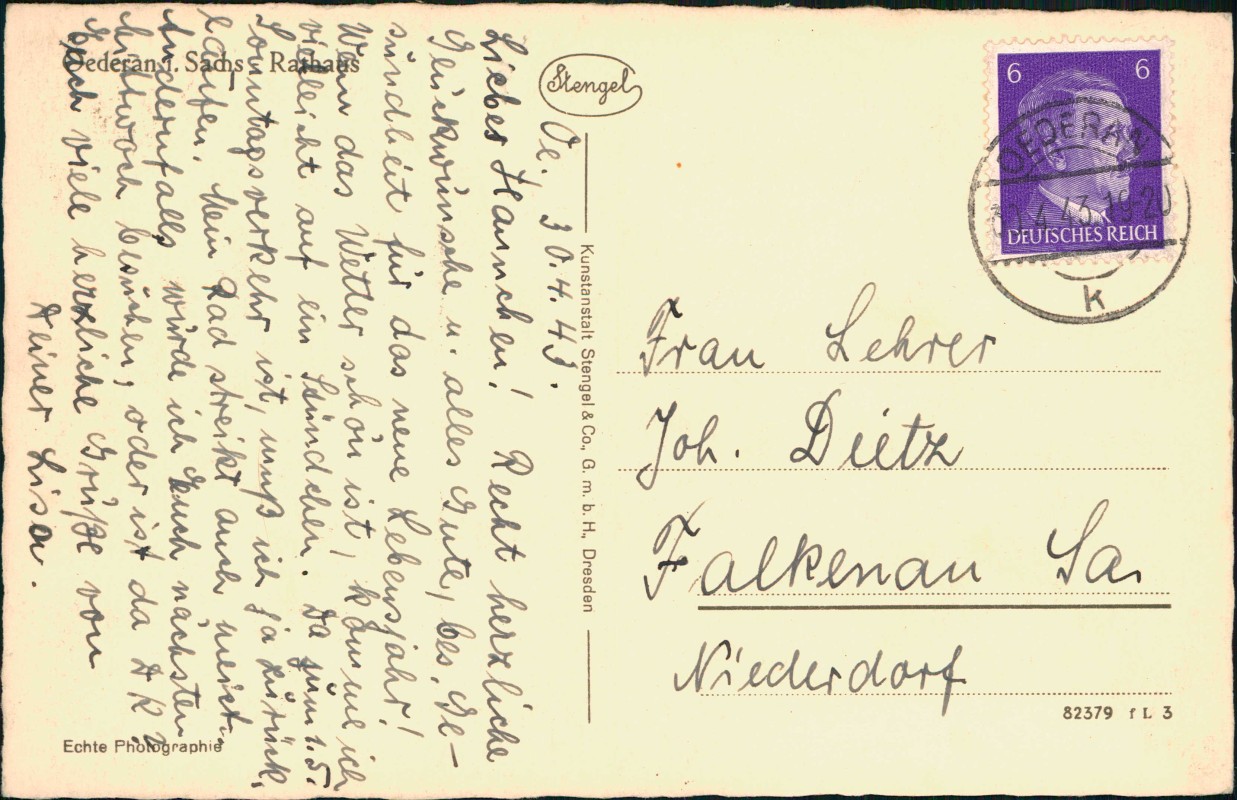 Oederan i. Sachs. Rathaus
Stengel
Oe. 30.4.43.
Liebes Hannchen! Recht herzliche
Glückwünsche u. alles Gute, bes. Ge-
sundheit für das neue Lebensjahr!
Wenn das Wetter schön ist, komme ich
vielleicht auf ein Stündchen. Da zum 1.5.
Sonntagsverkehr ist, muß ich ja zurück
laufen. Mein Rad streikt auch meist.
Andernfalls würde ich Euch nächsten
Mittwoch besuchen, oder ist da D.K.?
Euch viele herzliche Grüße von
Deiner Lisa.
Echte Photographie
Kunstanstalt Stengel & Co., G. m. b. H., Dresden
6 6
DEUTSCHES REICH
OEDERAN
30.4.43.19-20
k
Frau Lehrer
Joh. Dietz
Falkenau Sa.
Niederdorf
82379 f L 3